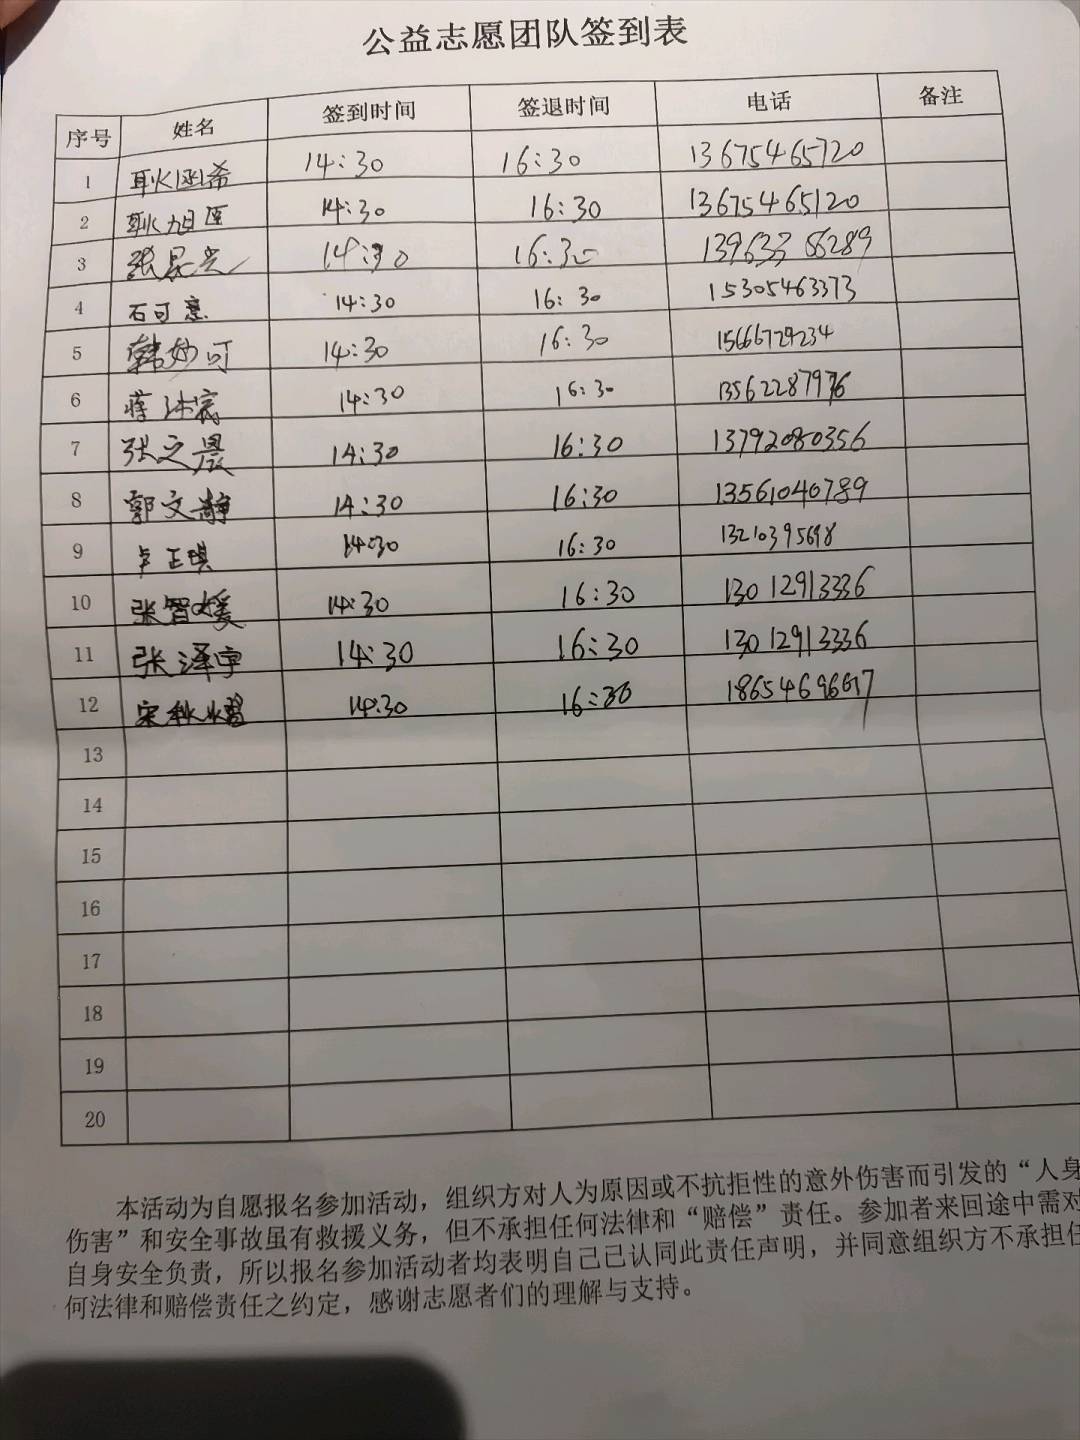 公益志愿团队签到表
序号 姓名 签到时间 签退时间 电话 备注
1 14:30 16:30 13675465720
2 耿旭 14:30 16:30 13675465120
3 张 14:30 16:30
4 石可意 14:30 16:30 15305463373
5 韩妙可 14:30 16:30 15666729234
6 蒋沐宸 14:30 16:30 13562287976
7 张文晨 14:30 16:30 13792080356
8 郭文静 14:30 16:30 13561040789
9 卢正琪 14:30 16:30 13210395698
10 张智媛 14:30 16:30 13012913336
11 张泽宇 14:30 16:30 13012913336
12 宋秋熠 14:30 16:30
13
14
15
16
17
18
19
20
本活动为自愿报名参加活动，组织方对人为原因或不抗拒性的意外伤害而引发的“人身
伤害”和安全事故虽有救援义务，但不承担任何法律和“赔偿”责任。参加者来回途中需对
自身安全负责，所以报名参加活动者均表明自己已认同此责任声明，并同意组织方不承担任
何法律和赔偿责任之约定，感谢志愿者们的理解与支持。